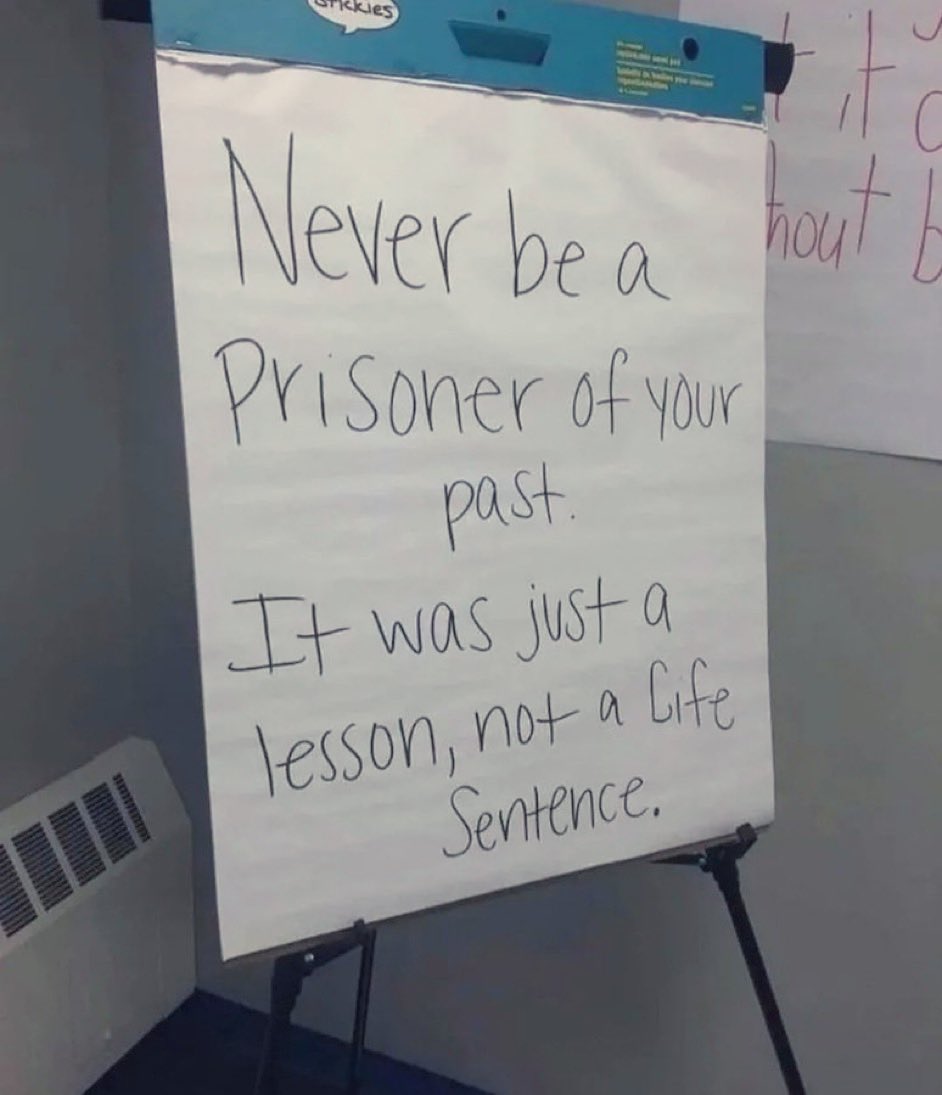 stickies
Never be a
Prisoner of your
past.
It was just a
lesson, not a life
Sentence.